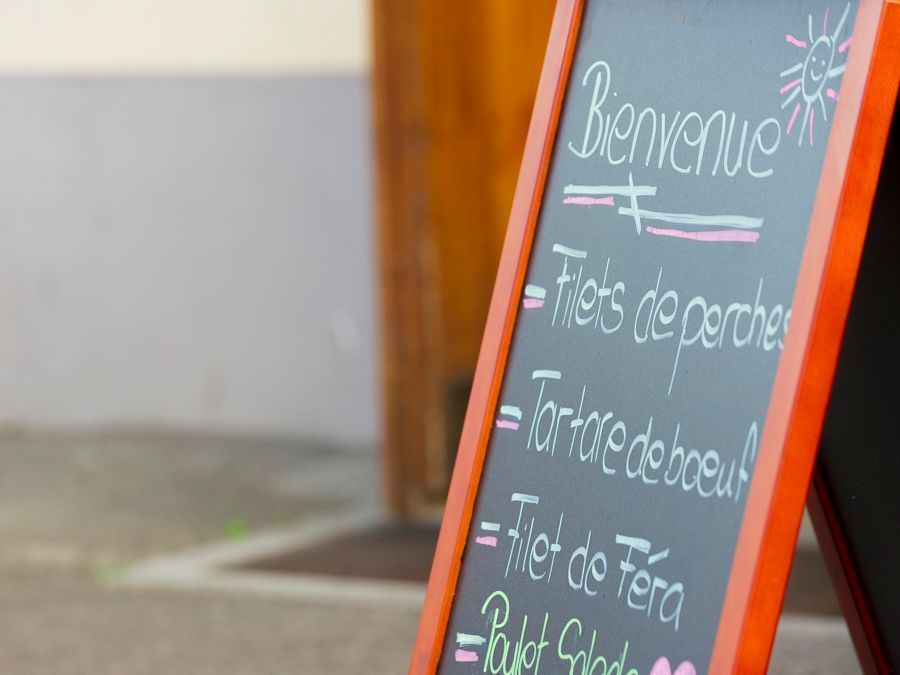 Bienvenue
= Filets de perches
= Tartare de boeuf
= Filet de Féra
= Poulet Salade